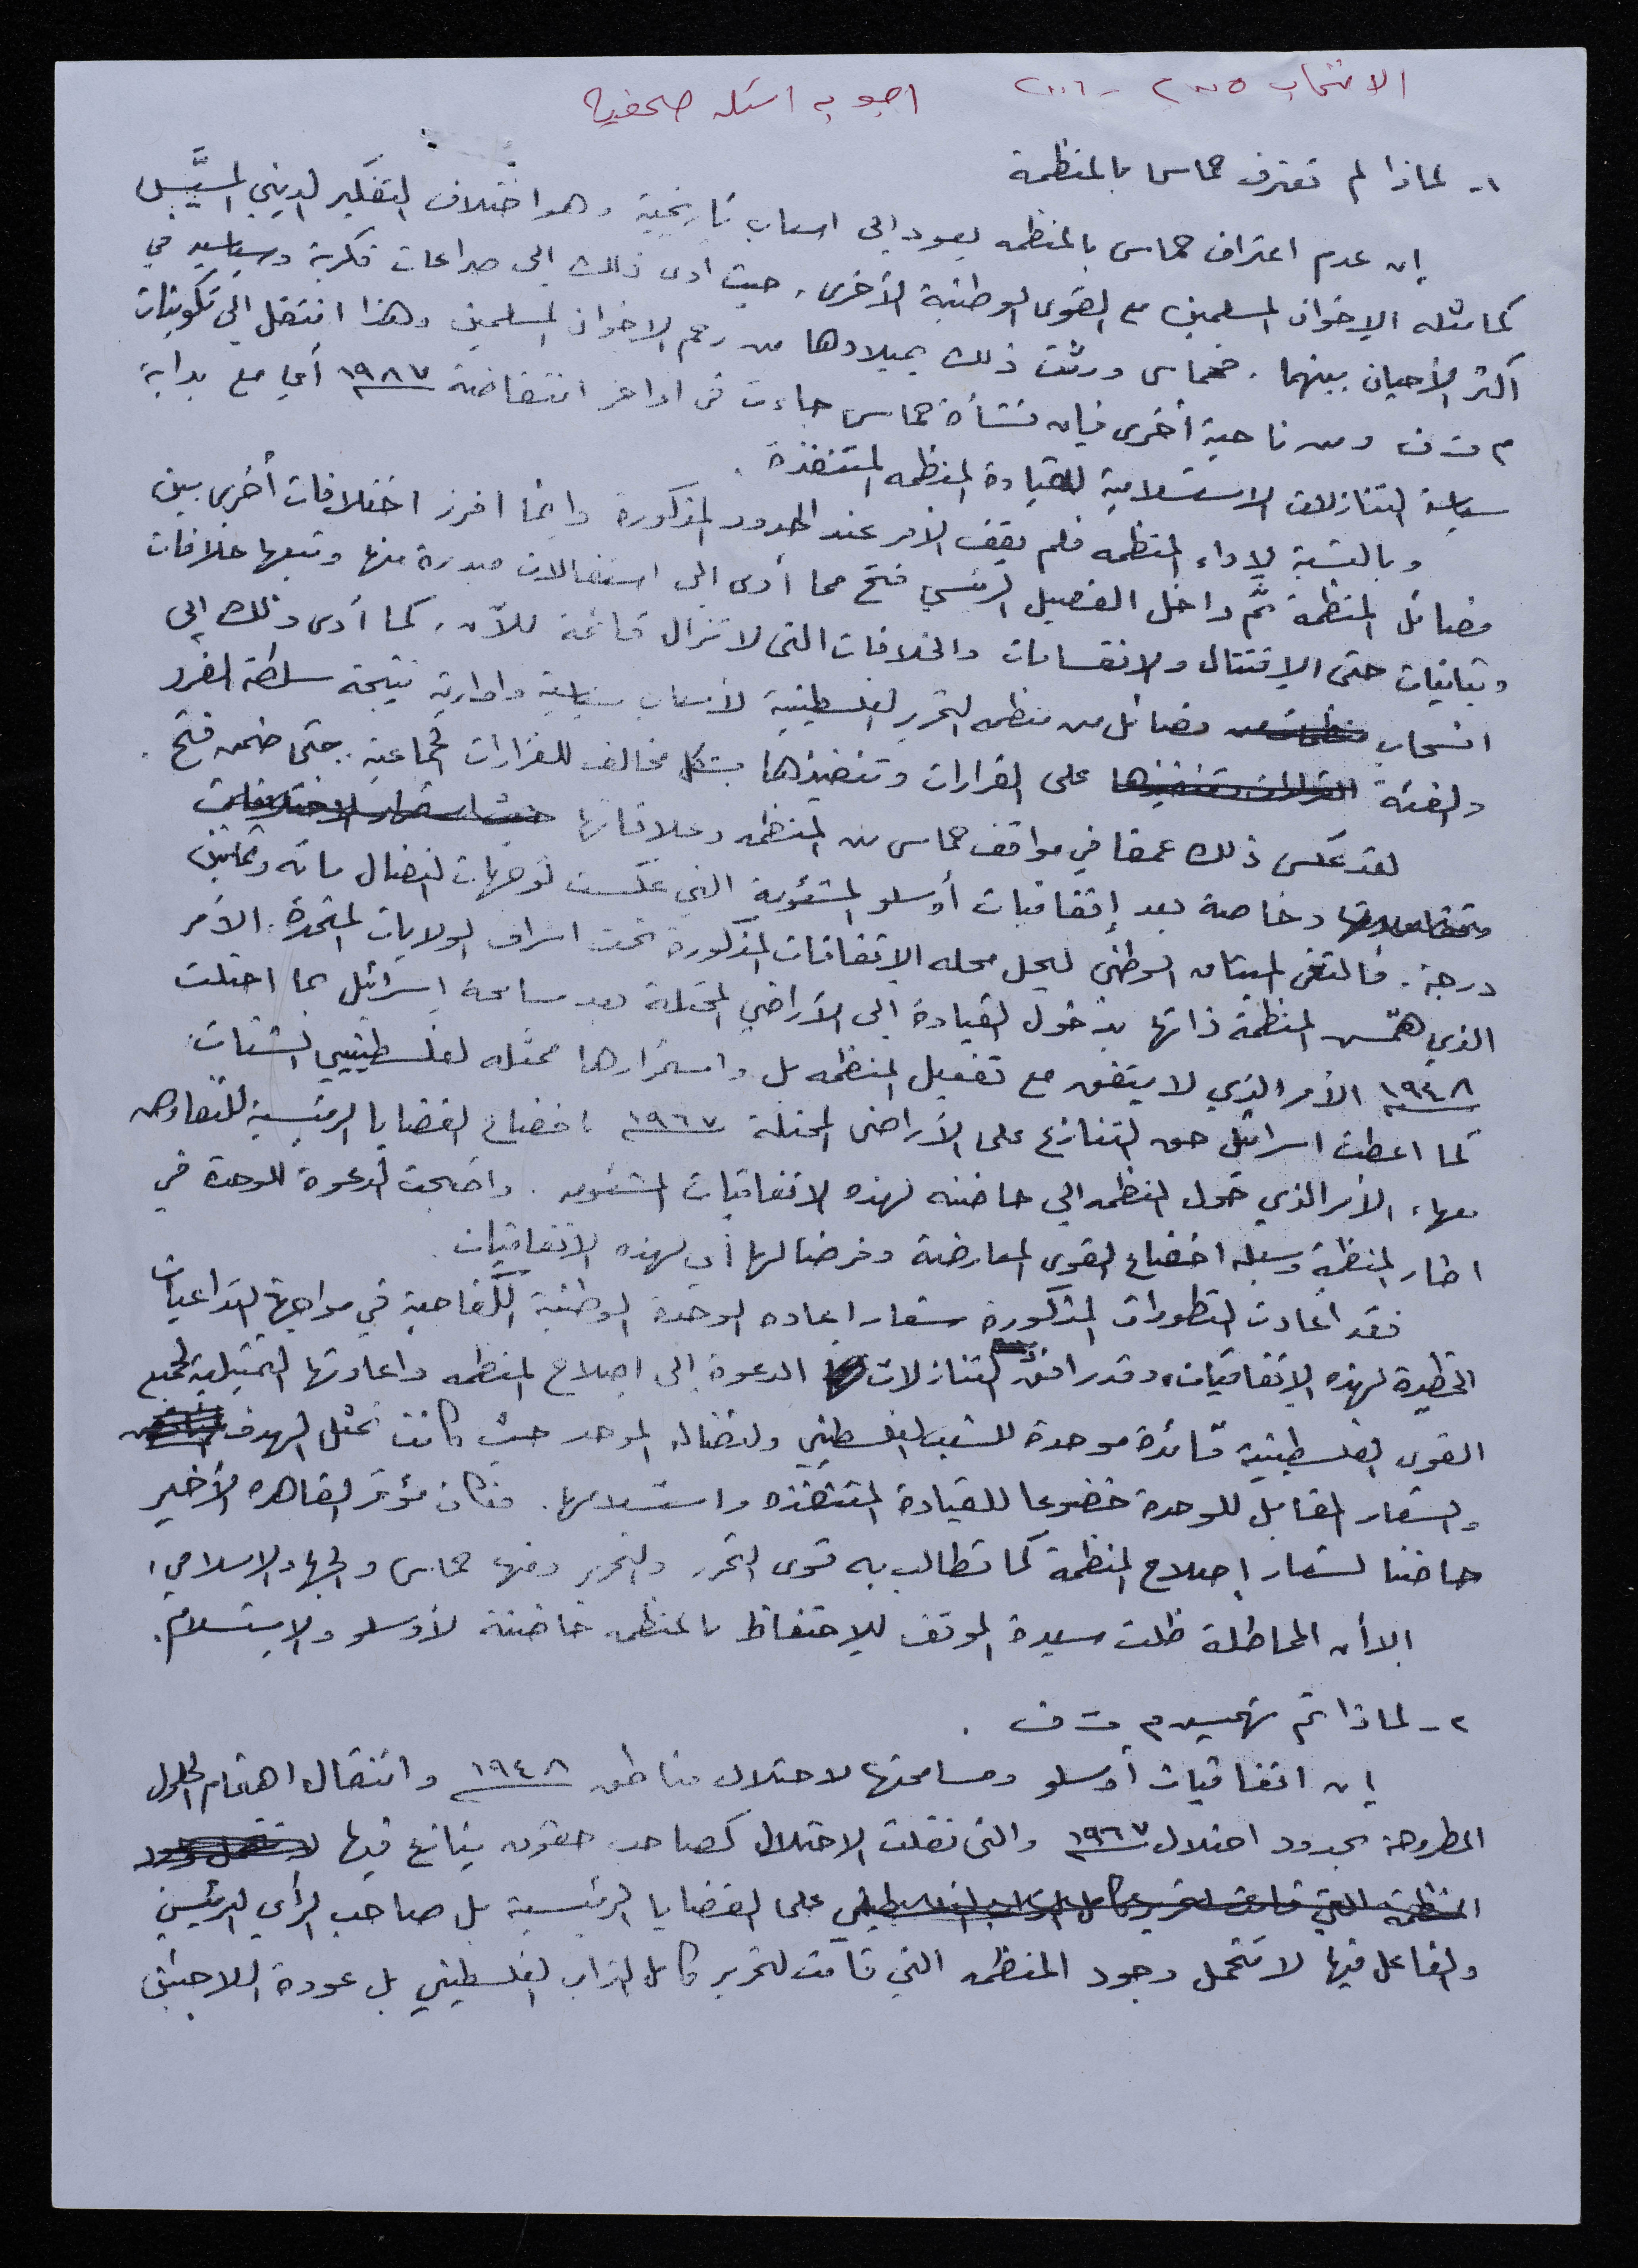 الانتخابات ٢٠٠٥ - ٢٠٠٦ اجوبه اسئله صحفيه
١- لماذا لم تعترف حماس بالمنظمة
إن عدم اعتراف حماس بالمنظمه يعود إلى اسباب تاريخية وهو اختلاف التفكير الديني المسيَّس
كما مثله الإخوان المسلمين مع القوى الوطنية الأخرى، حيث أدى ذلك إلى صراعات فكرية وسياسيه في
أكثر الأحيان بينهما. فحماس ورثت ذلك بميلادها من رحم الاخوان المسلمين وهذا انتقل إلى تكوينات
م ت ف ومن ناحية أخرى فإن نشأة حماس جاءت في اواخر انتفاضة ١٩٨٧ أي مع بداية
سياسة التنازلات الاستسلامية لقيادة المنظمه المتنفذة.
وبالنسبة لاداء المنظمه فلم يقف الأمر عند الحدود المذكورة وإنما افرز اختلافات أخرى بين
فصائل المنظمة ثمَّ داخل الفصيل الرئسي فتح مما أدى إلى استقالات مبررة منها وتبعها خلافات
وتباينات حتى الاقتتال والانقسامات والخلافات التي لا تزال قائمة للآن، كما أدى ذلك إلى
انسحاب فصائل من منظمه التحرير الفلسطينية لأسباب سياسية وادارية نتيجة سلطة الفرد
والفئة على القرارات وتنفيذها بشكل مخالف للقرارات الجماعية. حتى ضمن فتح.
لقد عكس ذلك عمقا في مواقف حماس من المنظمه وعلاقاتها
وخاصة بعد إتفاقيات أوسلو المشئومة التي عكست توجهات النضال مائه وثمانين
درجة. فالتغى الميثاق الوطني ليحل محله الاتفاقات المذكورة تحت اشراف الولايات المتحدة. الأمر
الذي همّش المنظمة ذاتها بدخول القيادة إلى الأراضي المحتلة بعد مسامحة إسرائيل بما احتلت
١٩٤٨ الأمر الذي لا يتفق مع تفعيل المنظمه بل واستمرارها ممثله لفلسطينيي الشتات.
كما اعطت اسرائيل حق التنازع على الأراضي المحتلة ١٩٦٧ باخضاع القضايا الرئيسية للتفاوض
معها، الأمر الذي حول المنظمه إلى حاضنه لهذه الاتفاقيات المشئومه. واضحت الدعوة للوحدة في
اطار المنظمة وسيله اخضاع القوى المعارضة وفرضا لها أي لهذه الاتفاقيات.
فقد اعادت التطورات المذكورة شعار اعاده الوحدة الوطنية الكفاحية في مواجهة التداعيات
الخطيرة لهذه الإتفاقيات، وقد رافق التنازلات الدعوة إلى اصلاح المنظمه واعادتها التمثيلية لجميع
القوى الفلسطينية قائدة موحدة للشعب الفلسطيني ولنضاله الموحد حيث كانت تمثل الهدف
والشعار المقابل للوحدة خضوعا للقيادة المتنفذه واستسلامها. فكان مؤتمر القاهره الأخير
حاضنا لشعار إصلاح المنظمة كما تطالب به قوى التحرر والتحرير ومنها حماس والجهاد الاسلامي،
الا أن المماطلة ظلت سيدة الموقف للاحتفاظ بالمنظمه حاضنة لأوسلو والاستسلام.
٢- لماذا تم تهميش م ت ف.
إن اتفاقيات أوسلو ومسامحتها لاحتلال مناطق ١٩٤٨ وانتقال اهتمام الحلول
المطروحة بحدود احتلال ١٩٦٧ والتي نقلت الاحتلال كصاحب حقوق ينازع فيها
على القضايا الرئيسية بل صاحب الرأي الرئيسي
والفاعل فيها لا تتحمل وجود المنظمه التي قامت لتحرير كامل التراب الفلسطيني بل عودة اللاجئين